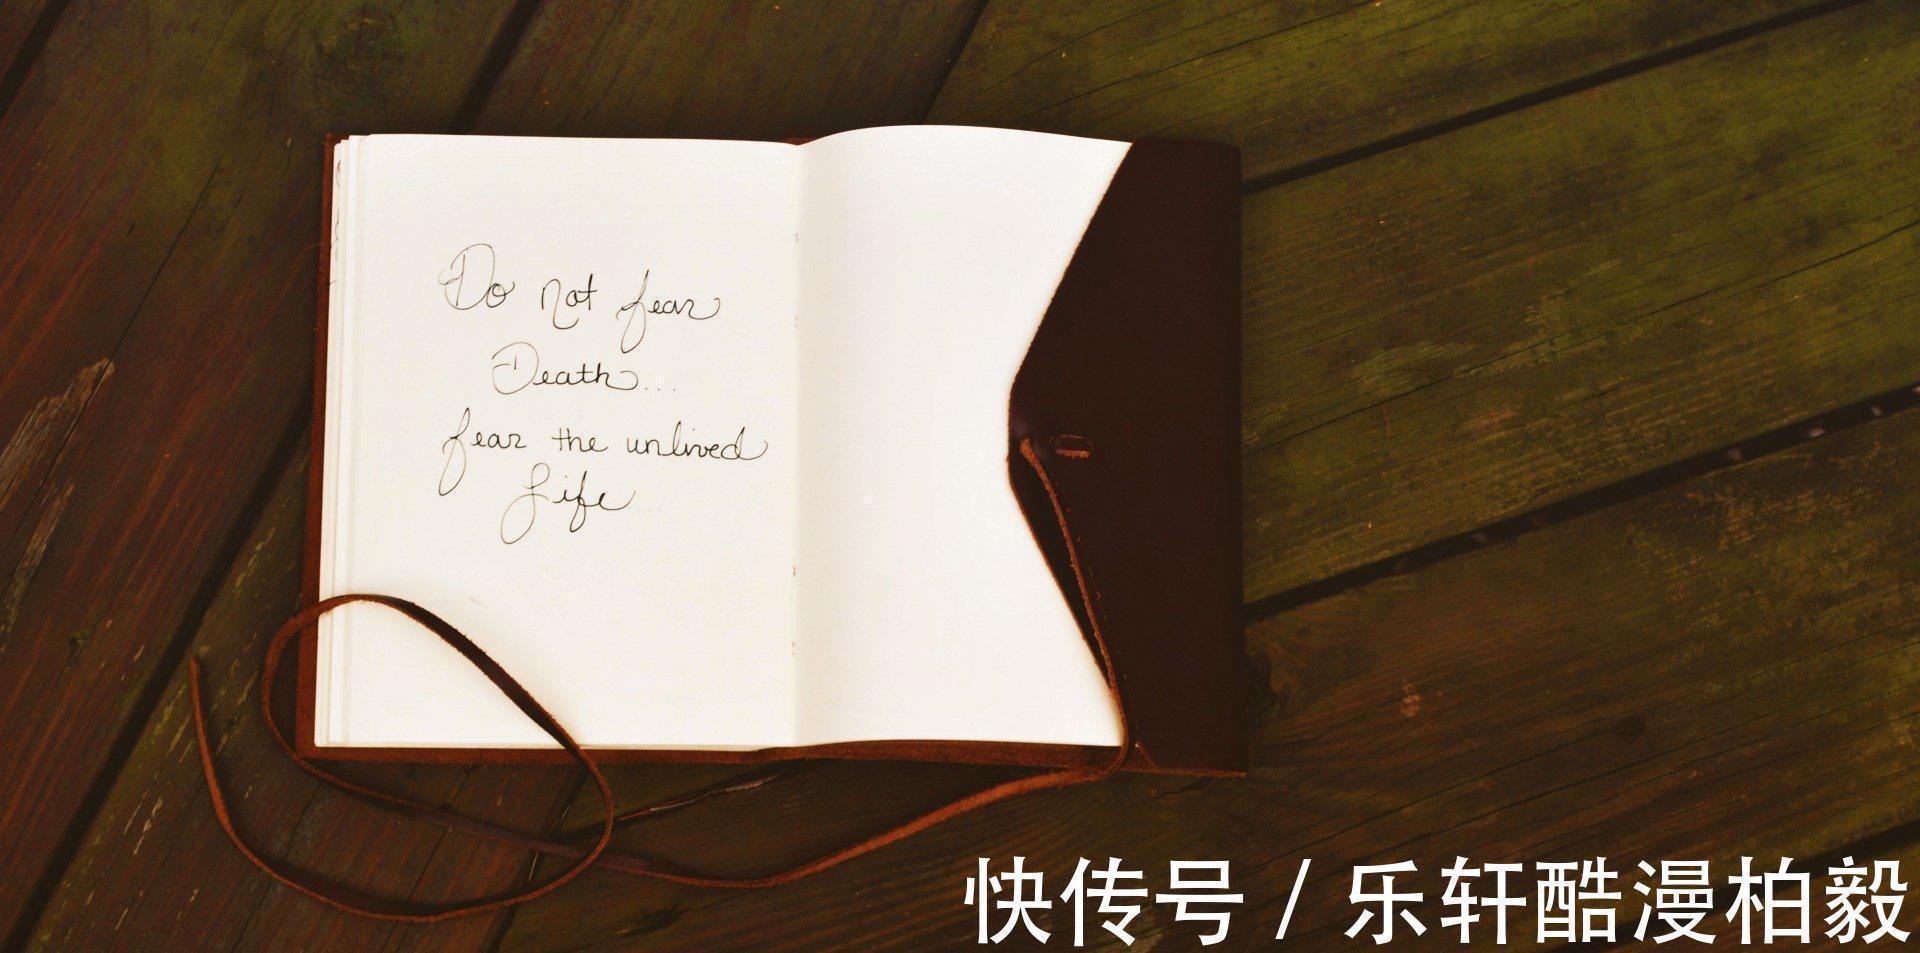 Do not fear
Death...
fear the unlived
Life...
快传号 / 乐轩酷漫柏毅